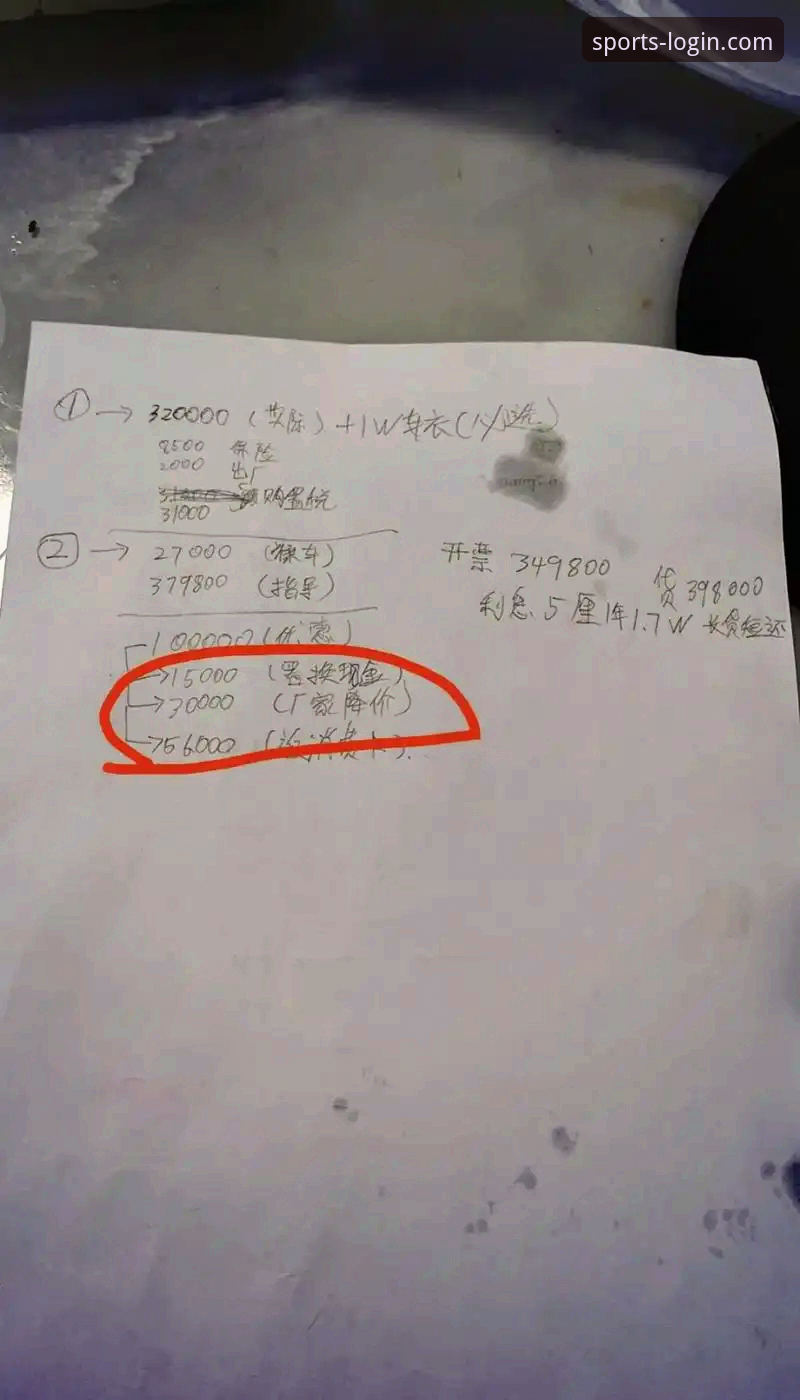 sports-login.com
① → 320000 (实际) +1W车衣(必选)
9500 保险
2000 出厂
31000 购置税
② → 27000 (裸车)
379800 (指导)
开票 349800
贷 398000
利息 5厘 1年1.7W 长贷短还
100000 (优惠)
→15000 (置换现金)
→30000 (厂家降价)
→56000 (油消费卡)